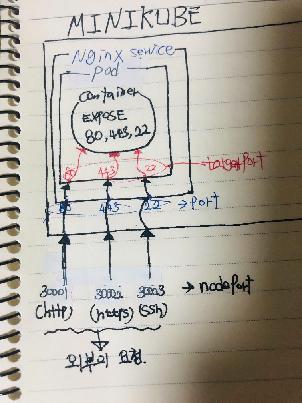 MINIKUBE
Nginx service
pod
Container
EXPOSE
80, 443, 22
80 443 22 targetport
80 443 22 → port
30001 30002 30003 → nodeport
(http) (https) (ssh)
외부의 요청